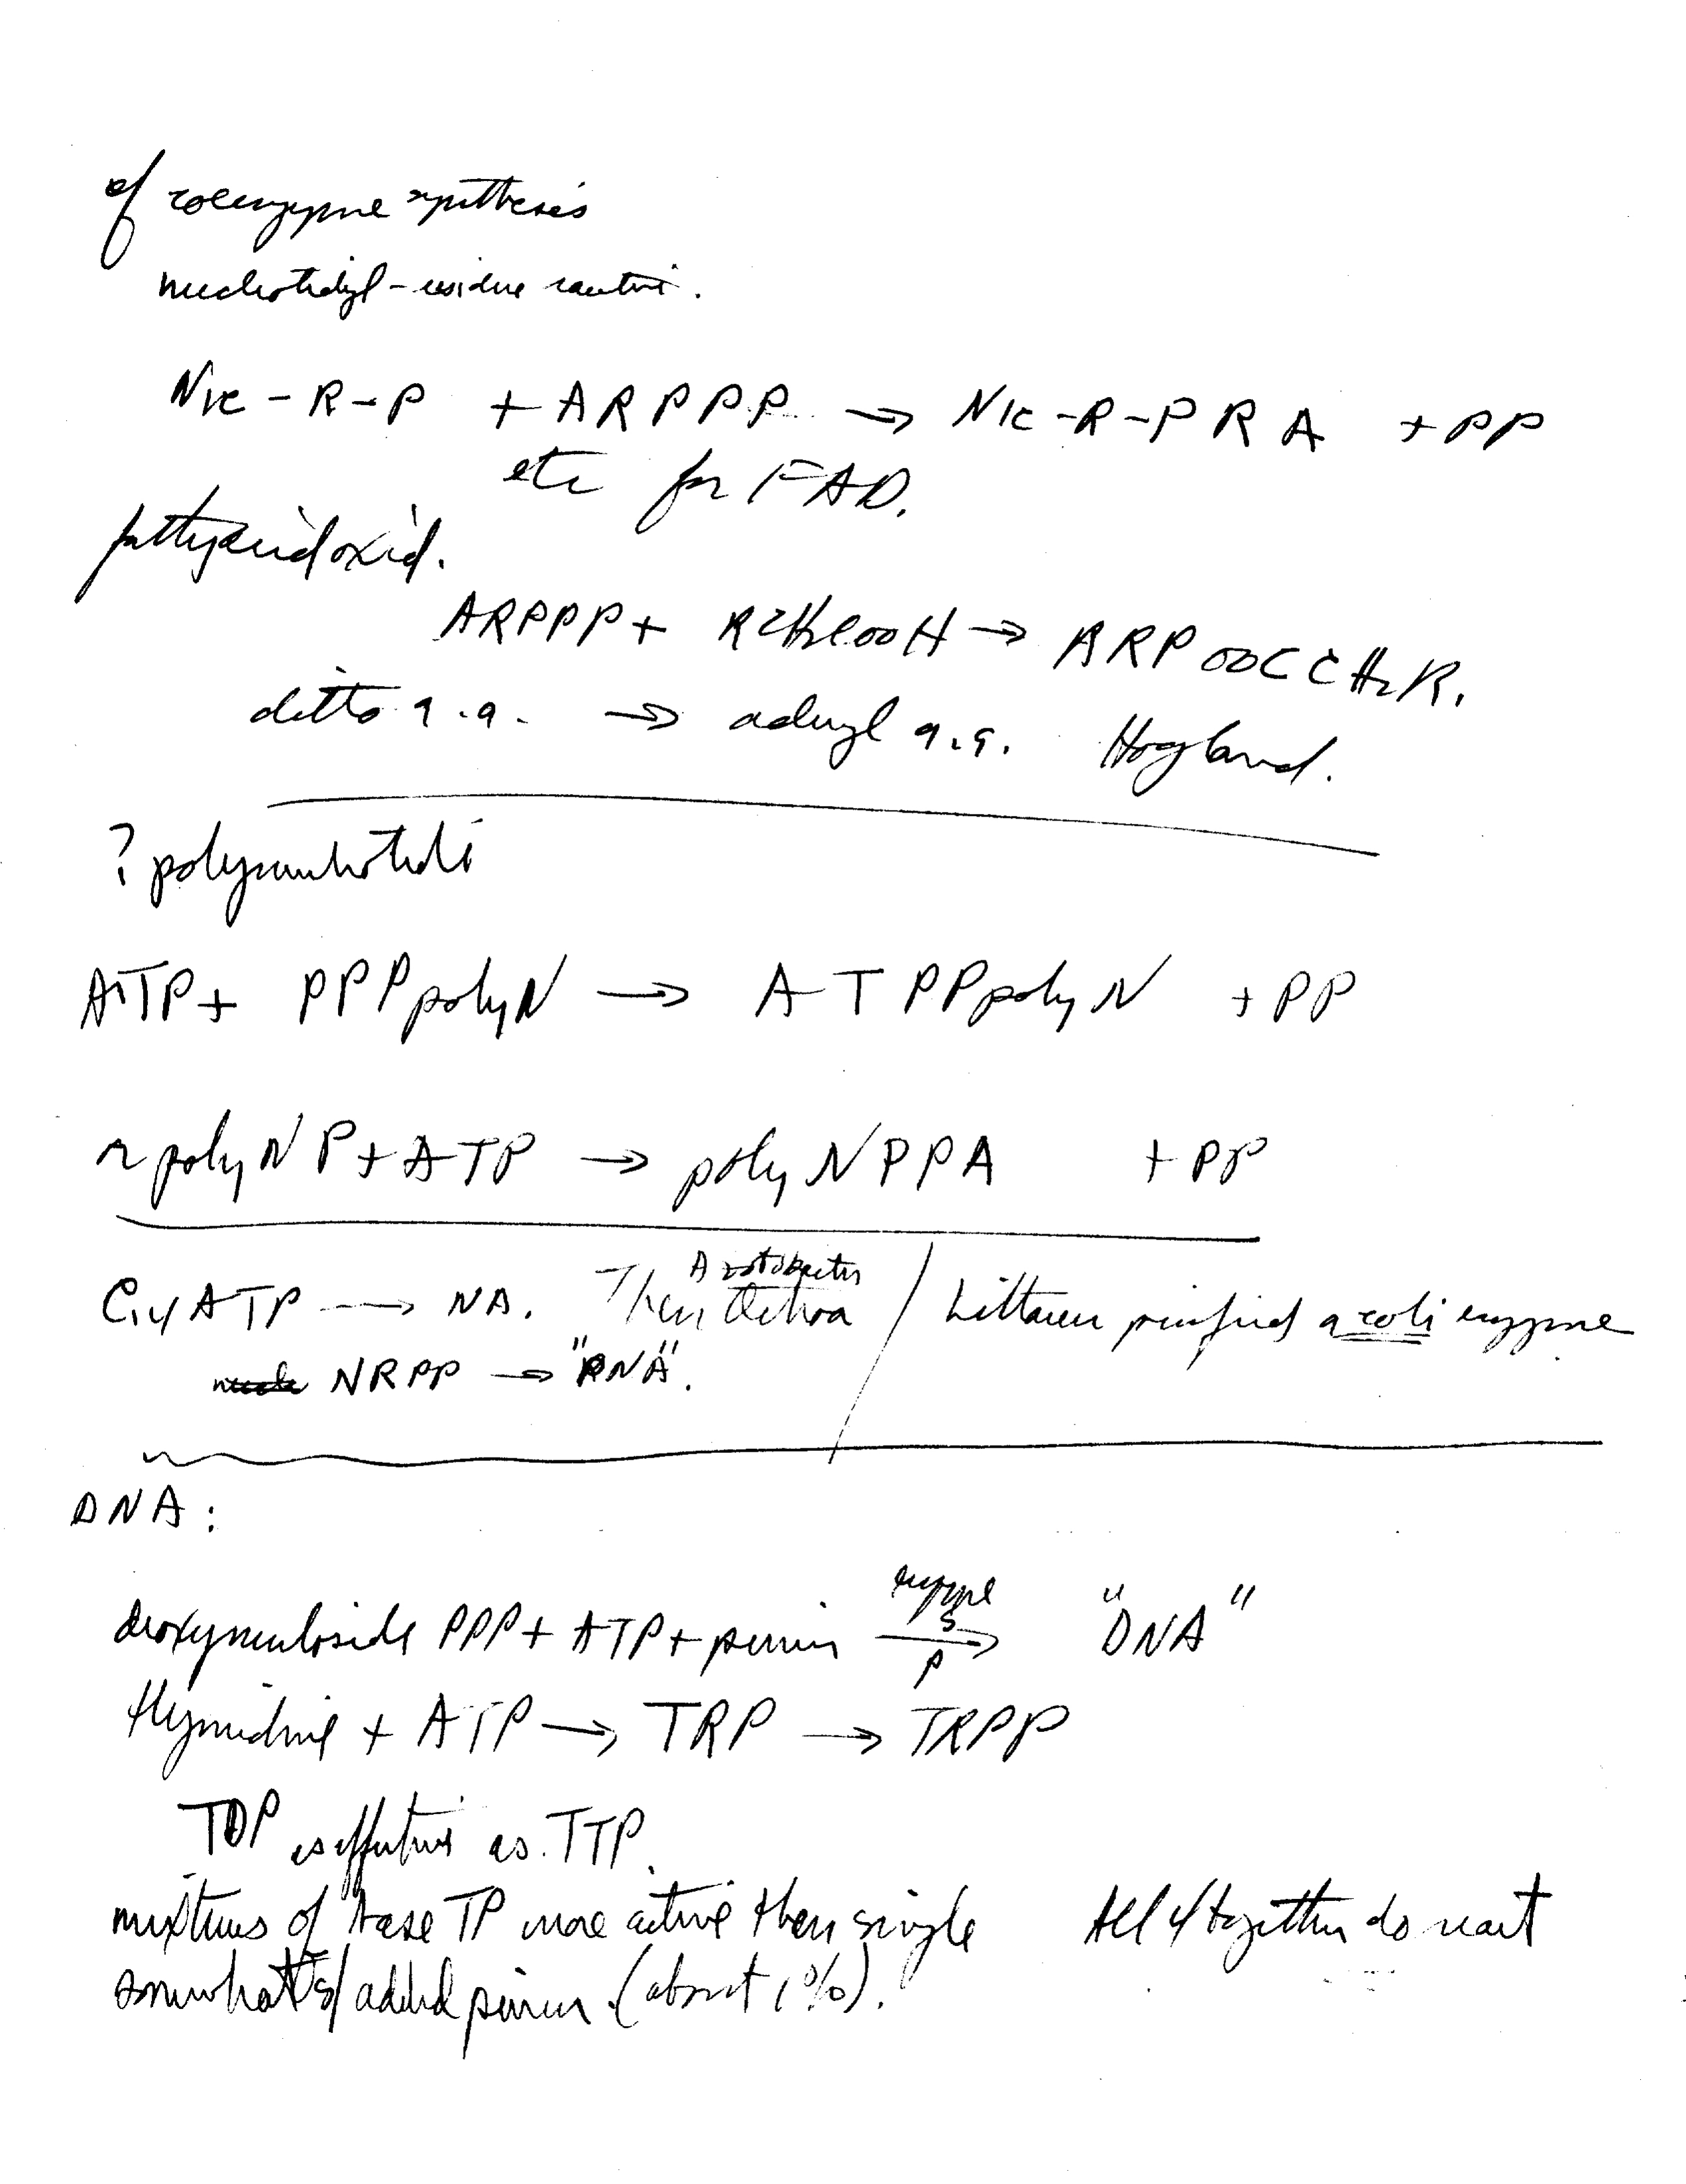 of coenzyme synthesis
nucleotidyl-residue reaction.
Nic - R - P + ARPPP → Nic - R - P R A + PP
etc for FAD.
fatty acid oxid.
ARPPP + RCH2COOH → ARPOOCCH2R.
ditto a.a. → adenyl a.a. Hogland.
? polynucleotide
ATP + PPPpolyN → A T PPpolyN + PP
r polyNP + ATP → polyNPPA + PP
C14 ATP → NA. Then Azotobacter Ochoa / Littauer purified a coli enzyme
NRPP → "RNA".
DNA:
deoxynucleoside PPP + ATP + primer enzyme S → P "DNA"
thymidine + ATP → TRP → TRPP
TDP as effective as TTP.
mixtures of base TP more active then single All 4 together do react
somewhat s/ added primer (about 1%).